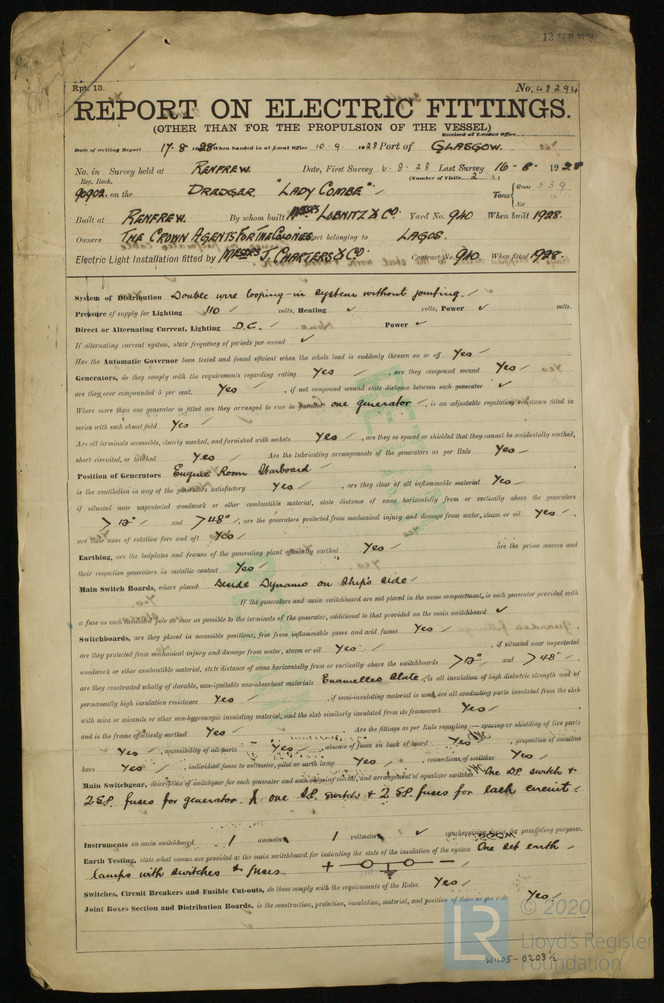 12 SEP 1928
Rpt. 13.
No. 48294
REPORT ON ELECTRIC FITTINGS.
(OTHER THAN FOR THE PROPULSION OF THE VESSEL)
Received at London Office
Date of writing Report 17·8 1928 When handed in at Local Office 10·9·1928 Port of GLASGOW.
No. in Survey held at RENFREW. Date, First Survey 6·8·28 Last Survey 16·8·1928
Reg. Book. (Number of Visits 2)
90902 on the DREDGER. "LADY COMBE" Tons { Gross 539
Net
Built at RENFREW. By whom built MESSRS LOBNITZ & CO. Yard No. 940 When built 1928.
Owners THE CROWN AGENTS FOR THE COLONIES. Port belonging to LAGOS.
Electric Light Installation fitted by MESSRS J. CHARTERS & CO. Contract No. 940 When fitted 1928.
System of Distribution Double wire looping-in system without jointing.
Pressure of supply for Lighting 110 volts, Heating ✓ volts, Power ✓ volts.
Direct or Alternating Current, Lighting D.C. Power ✓
If alternating current system, state frequency of periods per second ✓
Has the Automatic Governor been tested and found efficient when the whole load is suddenly thrown on or off Yes
Generators, do they comply with the requirements regarding rating Yes, are they compound wound Yes
are they over compounded 5 per cent. Yes, if not compound wound state distance between each generator ✓
Where more than one generator is fitted are they arranged to run in parallel one generator, is an adjustable regulating resistance fitted in
series with each shunt field Yes
Are all terminals accessible, clearly marked, and furnished with sockets Yes, are they so spaced or shielded that they cannot be accidentally earthed,
short circuited, or touched Yes Are the lubricating arrangements of the generators as per Rule Yes
Position of Generators Engine Room Starboard
is the ventilation in way of the generators satisfactory Yes, are they clear of all inflammable material Yes
if situated near unprotected woodwork or other combustible material, state distance of same horizontally from or vertically above the generators
> 12" and > 48", are the generators protected from mechanical injury and damage from water, steam or oil Yes,
are their axes of rotation fore and aft Yes
Earthing, are the bedplates and frames of the generating plant efficiently earthed Yes are the prime movers and
their respective generators in metallic contact Yes
Main Switch Boards, where placed Beside Dynamo on Ship's side
If the generators and main switchboard are not placed in the same compartment, is each generator provided with
a fuse on each insulated pole as near as possible to the terminals of the generator, additional to that provided on the main switchboard ✓
Switchboards, are they placed in accessible positions, free from inflammable gases and acid fumes Yes,
are they protected from mechanical injury and damage from water, steam or oil Yes, if situated near unprotected
woodwork or other combustible material, state distance of same horizontally from or vertically above the switchboards > 12" and > 48",
are they constructed wholly of durable, non-ignitable non-absorbent materials Enamelled Slate, is all insulation of high dielectric strength and of
permanently high insulation resistance Yes, if semi-insulating material is used, are all conducting parts insulated from the slab
with mica or micanite or other non-hygroscopic insulating material, and the slab similarly insulated from its framework Yes,
and is the frame effectively earthed Yes Are the fittings as per Rule regarding:— spacing or shielding of live parts
Yes, accessibility of all parts Yes, absence of fuses on back of board Yes, proportion of omnibus
bars Yes, individual fuses to voltmeter, pilot or earth lamp Yes, connections of switches Yes
Main Switchgear, description of switchgear for each generator and each outgoing circuit, and arrangement of equalizer switches One D.P. switch +
2 S.P. fuses for generator & one D.P. switch + 2 S.P. fuses for each circuit
Instruments on main switchboard 1 ammeters 1 voltmeters ✓ synchronising device for paralleling purposes.
Earth Testing, state what means are provided at the main switchboard for indicating the state of the insulation of the system One set earth
lamps with switches & fuses
Switches, Circuit Breakers and Fusible Cut-outs, do these comply with the requirements of the Rules Yes
Joint Boxes Section and Distribution Boards, is the construction, protection, insulation, material, and position of these as per rule Yes
LR
© 2020
Lloyd's Register
Foundation
W405-0203 ½